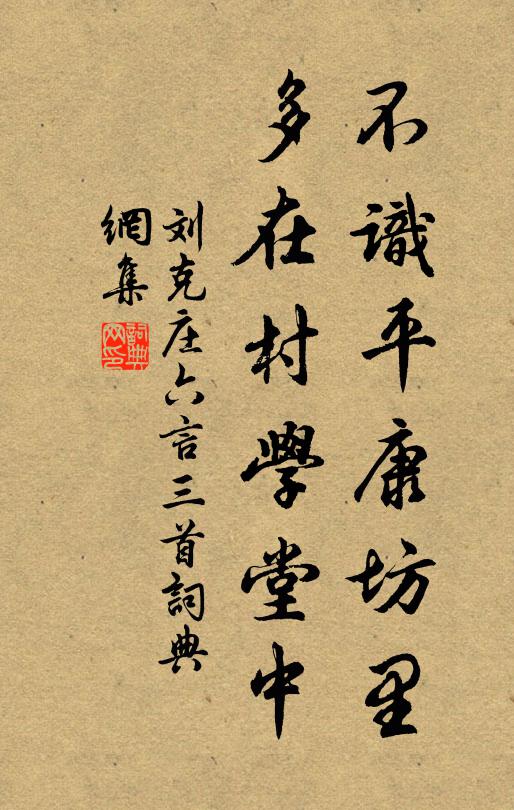 不識平康坊里
多在村學堂中
刘克庄六言三首詞典
網集
詞典
网印